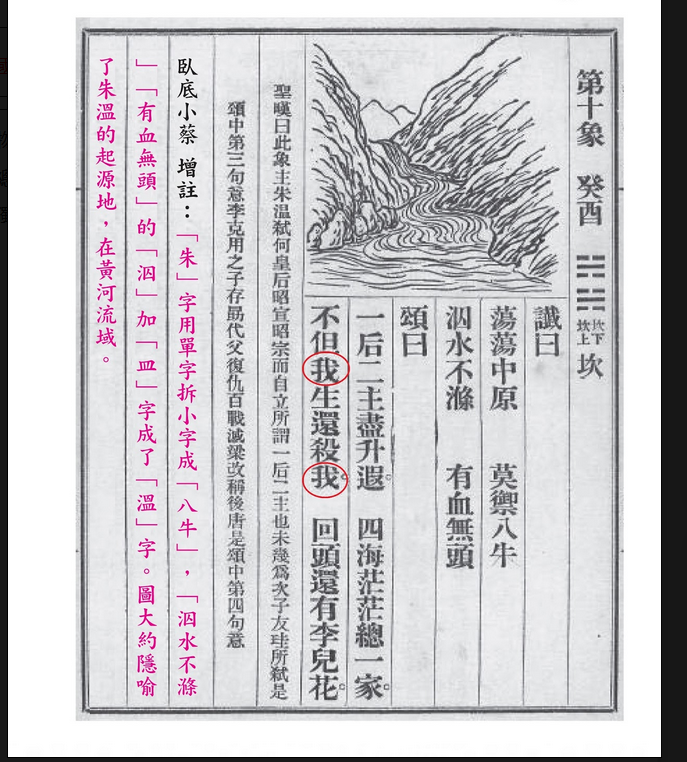 第十象 癸酉 ䷜ 坎下 坎上 坎
讖曰
蕩蕩中原 莫禦八牛
泅水不滌 有血無頭
頌曰
一后二主盡升遐。 四海茫茫總一家。
不但我生還殺我。 回頭還有李兒花。
聖嘆曰此象主朱溫弒何皇后昭宣昭宗而自立所謂一后二主也未幾爲次子友珪所弒是
頌中第三句意李克用之子存勗代父復仇百戰滅梁改稱後唐是頌中第四句意
臥底小蔡 增註：「朱」字用單字拆小字成「八牛」，「泅水不滌
」「有血無頭」的「泅」加「皿」字成了「溫」字。圖大約隱喻
了朱溫的起源地，在黃河流域。